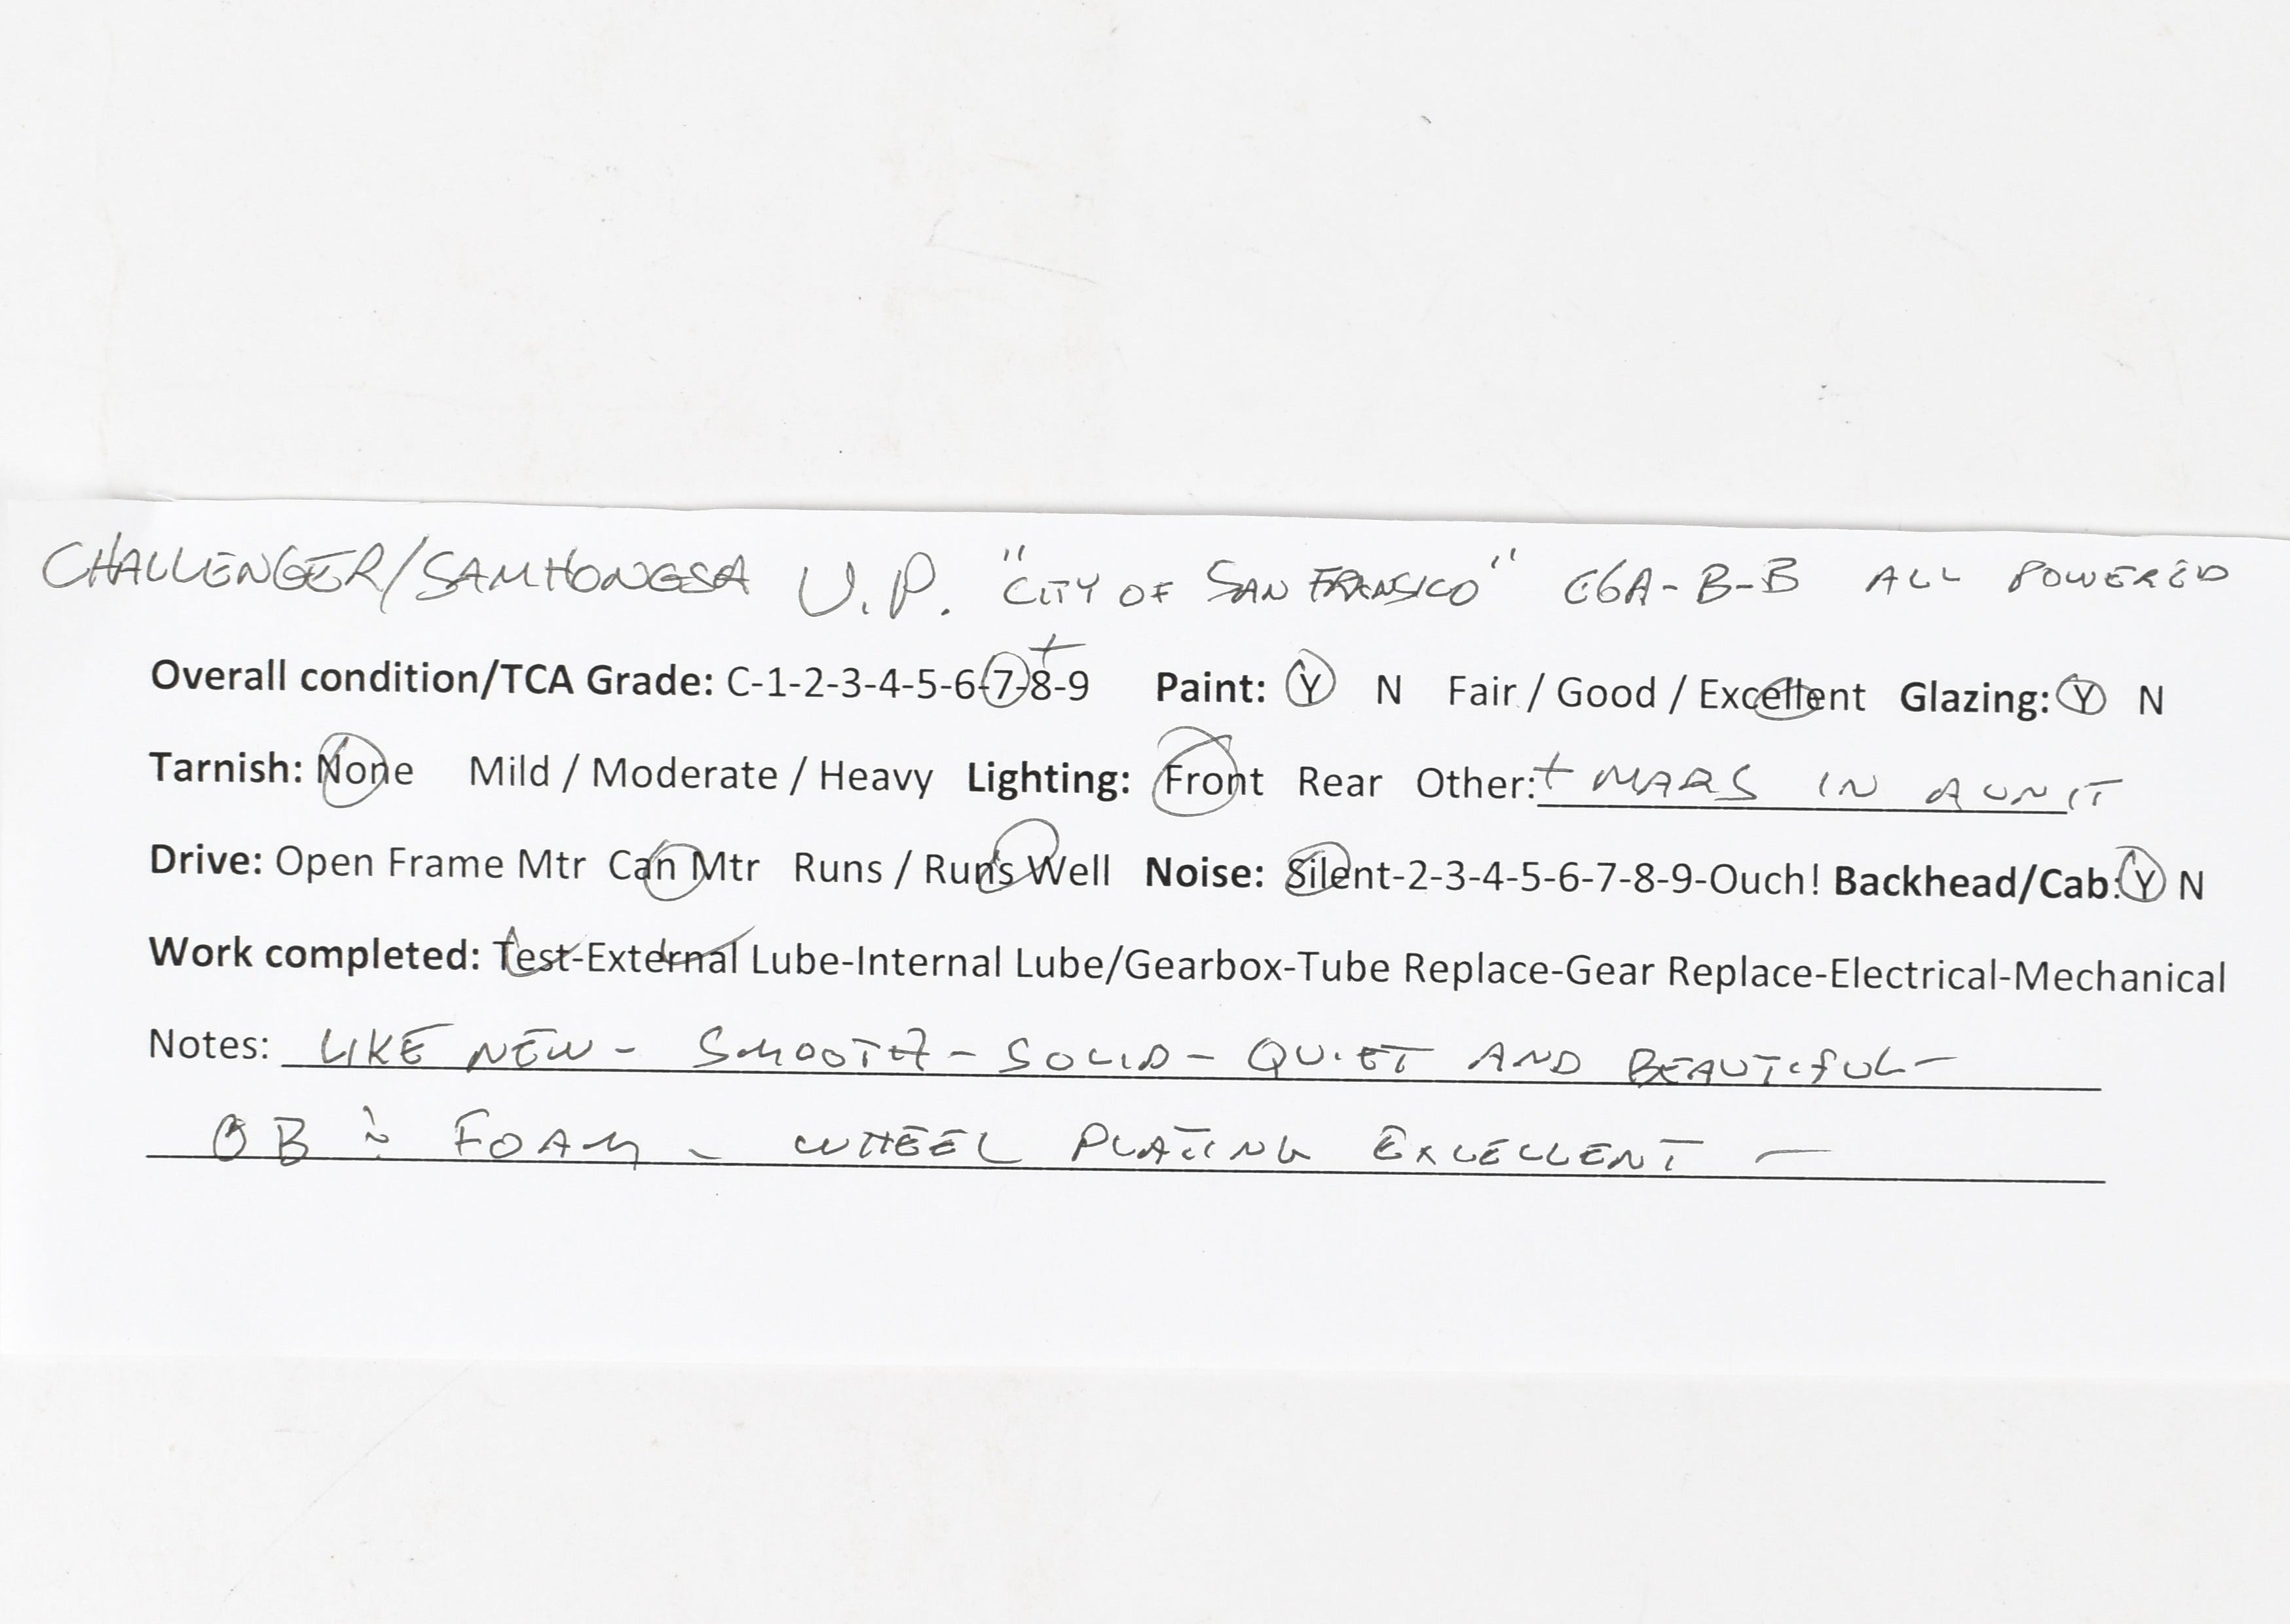 CHALLENGER/SAMHONGSA U.P. "CITY OF SAN FRANSICO" E6A-B-B ALL POWERED
+
Overall condition/TCA Grade: C-1-2-3-4-5-6-7-8-9 Paint: Y N Fair / Good / Excellent Glazing: Y N
Tarnish: None Mild / Moderate / Heavy Lighting: Front Rear Other: + MARS IN A UNIT
Drive: Open Frame Mtr Can Mtr Runs / Runs Well Noise: Silent-2-3-4-5-6-7-8-9-Ouch! Backhead/Cab: Y N
Work completed: Test-External Lube-Internal Lube/Gearbox-Tube Replace-Gear Replace-Electrical-Mechanical
Notes: LIKE NEW - SMOOTH - SOLID - QUIET AND BEAUTIFUL -
OB FOAM - WHEEL PLATING EXCELLENT -